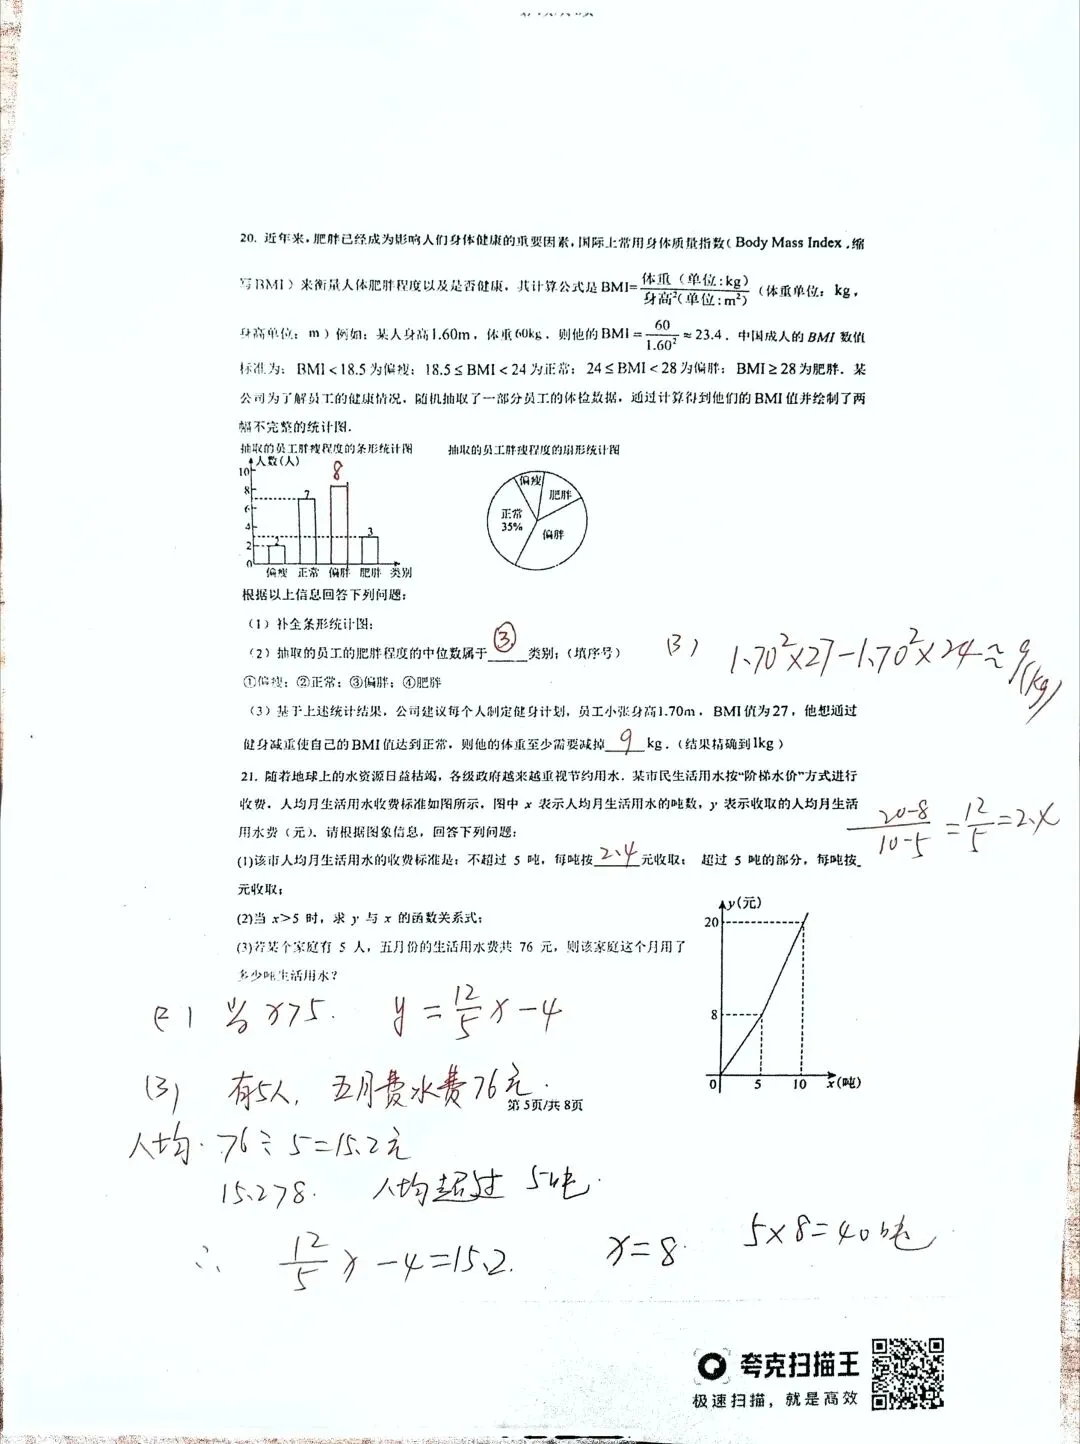 20. 近年来,肥胖已经成为影响人们身体健康的重要因素,国际上常用身体质量指数( Body Mass Index ,缩
写BMI)来衡量人体肥胖程度以及是否健康,其计算公式是 BMI=体重(单位:kg)/身高²(单位:m²)(体重单位:kg,
身高单位:m)例如:某人身高1.60m,体重60kg,则他的BMI=60/1.60²≈23.4.中国成人的BMI数值
标准为:BMI<18.5为偏瘦;18.5≤BMI<24为正常;24≤BMI<28为偏胖;BMI≥28为肥胖.某
公司为了解员工的健康情况,随机抽取了一部分员工的体检数据,通过计算得到他们的BMI值并绘制了两
幅不完整的统计图.
抽取的员工胖瘦程度的条形统计图 抽取的员工胖瘦程度的扇形统计图
人数(人)
10
8
6
4
2
0
2
7
8
3
偏瘦 正常 偏胖 肥胖 类别
偏瘦
肥胖
正常
35%
偏胖
根据以上信息回答下列问题:
(1)补全条形统计图;
(2)抽取的员工的肥胖程度的中位数属于③类别;(填序号)
①偏瘦;②正常;③偏胖;④肥胖
(3) 1.70²×27-1.70²×24≈9(kg)
(3)基于上述统计结果,公司建议每个人制定健身计划,员工小张身高1.70m,BMI值为27,他想通过
健身减重使自己的BMI值达到正常,则他的体重至少需要减掉9kg.(结果精确到1kg)
21. 随着地球上的水资源日益枯竭,各级政府越来越重视节约用水.某市民生活用水按“阶梯水价”方式进行
收费,人均月生活用水收费标准如图所示,图中 x 表示人均月生活用水的吨数,y 表示收取的人均月生活
用水费(元).请根据图象信息,回答下列问题:
(20-8)/(10-5)=12/5=2.4
(1)该市人均月生活用水的收费标准是:不超过 5 吨,每吨按2.4元收取; 超过 5 吨的部分,每吨按_
元收取;
(2)当 x>5 时,求 y 与 x 的函数关系式;
(3)若某个家庭有 5 人,五月份的生活用水费共 76 元,则该家庭这个月用了
多少吨生活用水?
y(元)
20
8
0 5 10 x(吨)
(2) 当x>5. y=12/5x-4
(3) 有5人, 五月费水费76元.
第 5页/共 8页
人均.76÷5=15.2元
15.2>8. 人均超过5吨.
∴ 12/5x-4=15.2. x=8. 5×8=40吨
夸克扫描王
极速扫描,就是高效